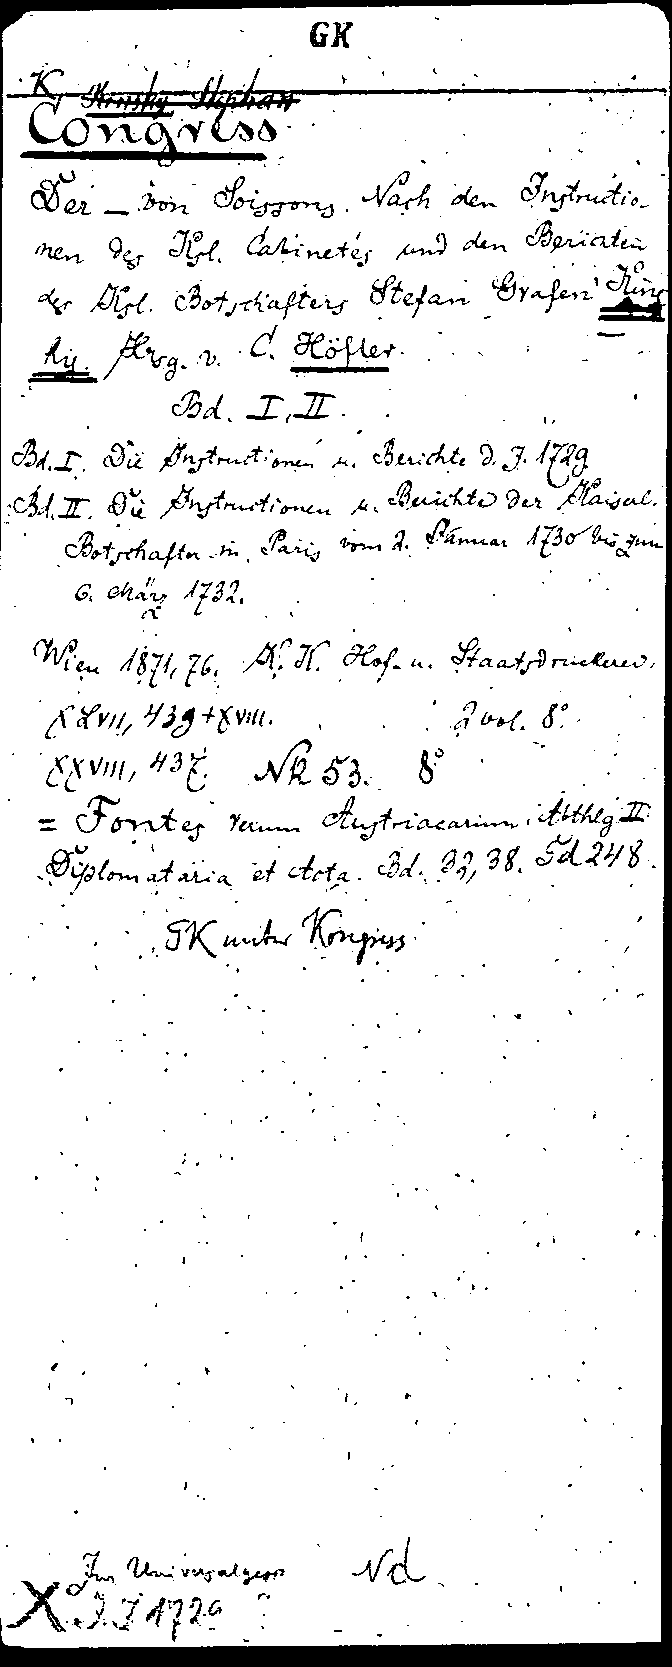 GK
K, Kinsky Stephan
Congress
Der — von Soissons. Nach den Instructio-
nen des Ksl. Cabinetes und den Berichten
des Ksl. Botschafters Stefan Grafen Kins
ky. Hrsg. v. C. Höfler.
Bd. I, II.
Bd. I. Die Instructionen u. Berichte d. J. 1729
Bd. II. Die Instructionen u. Berichte der Kaiserl.
Botschafter in Paris vom 2. Januar 1730 bis zum
6. März 1732.
Wien 1871, 76. K. K. Hof- u. Staatsdruckerei.
XLVII, 439+XVIII. 2 vol. 8°
XXVIII, 437. NK 53. 8°
= Fontes rerum Austriacarum. Abthlg II
Diplomataria et Acta. Bd. 32, 38. Gd 248.
GK unter Kongress
Im Universalgesch Nd
X J. J 1729